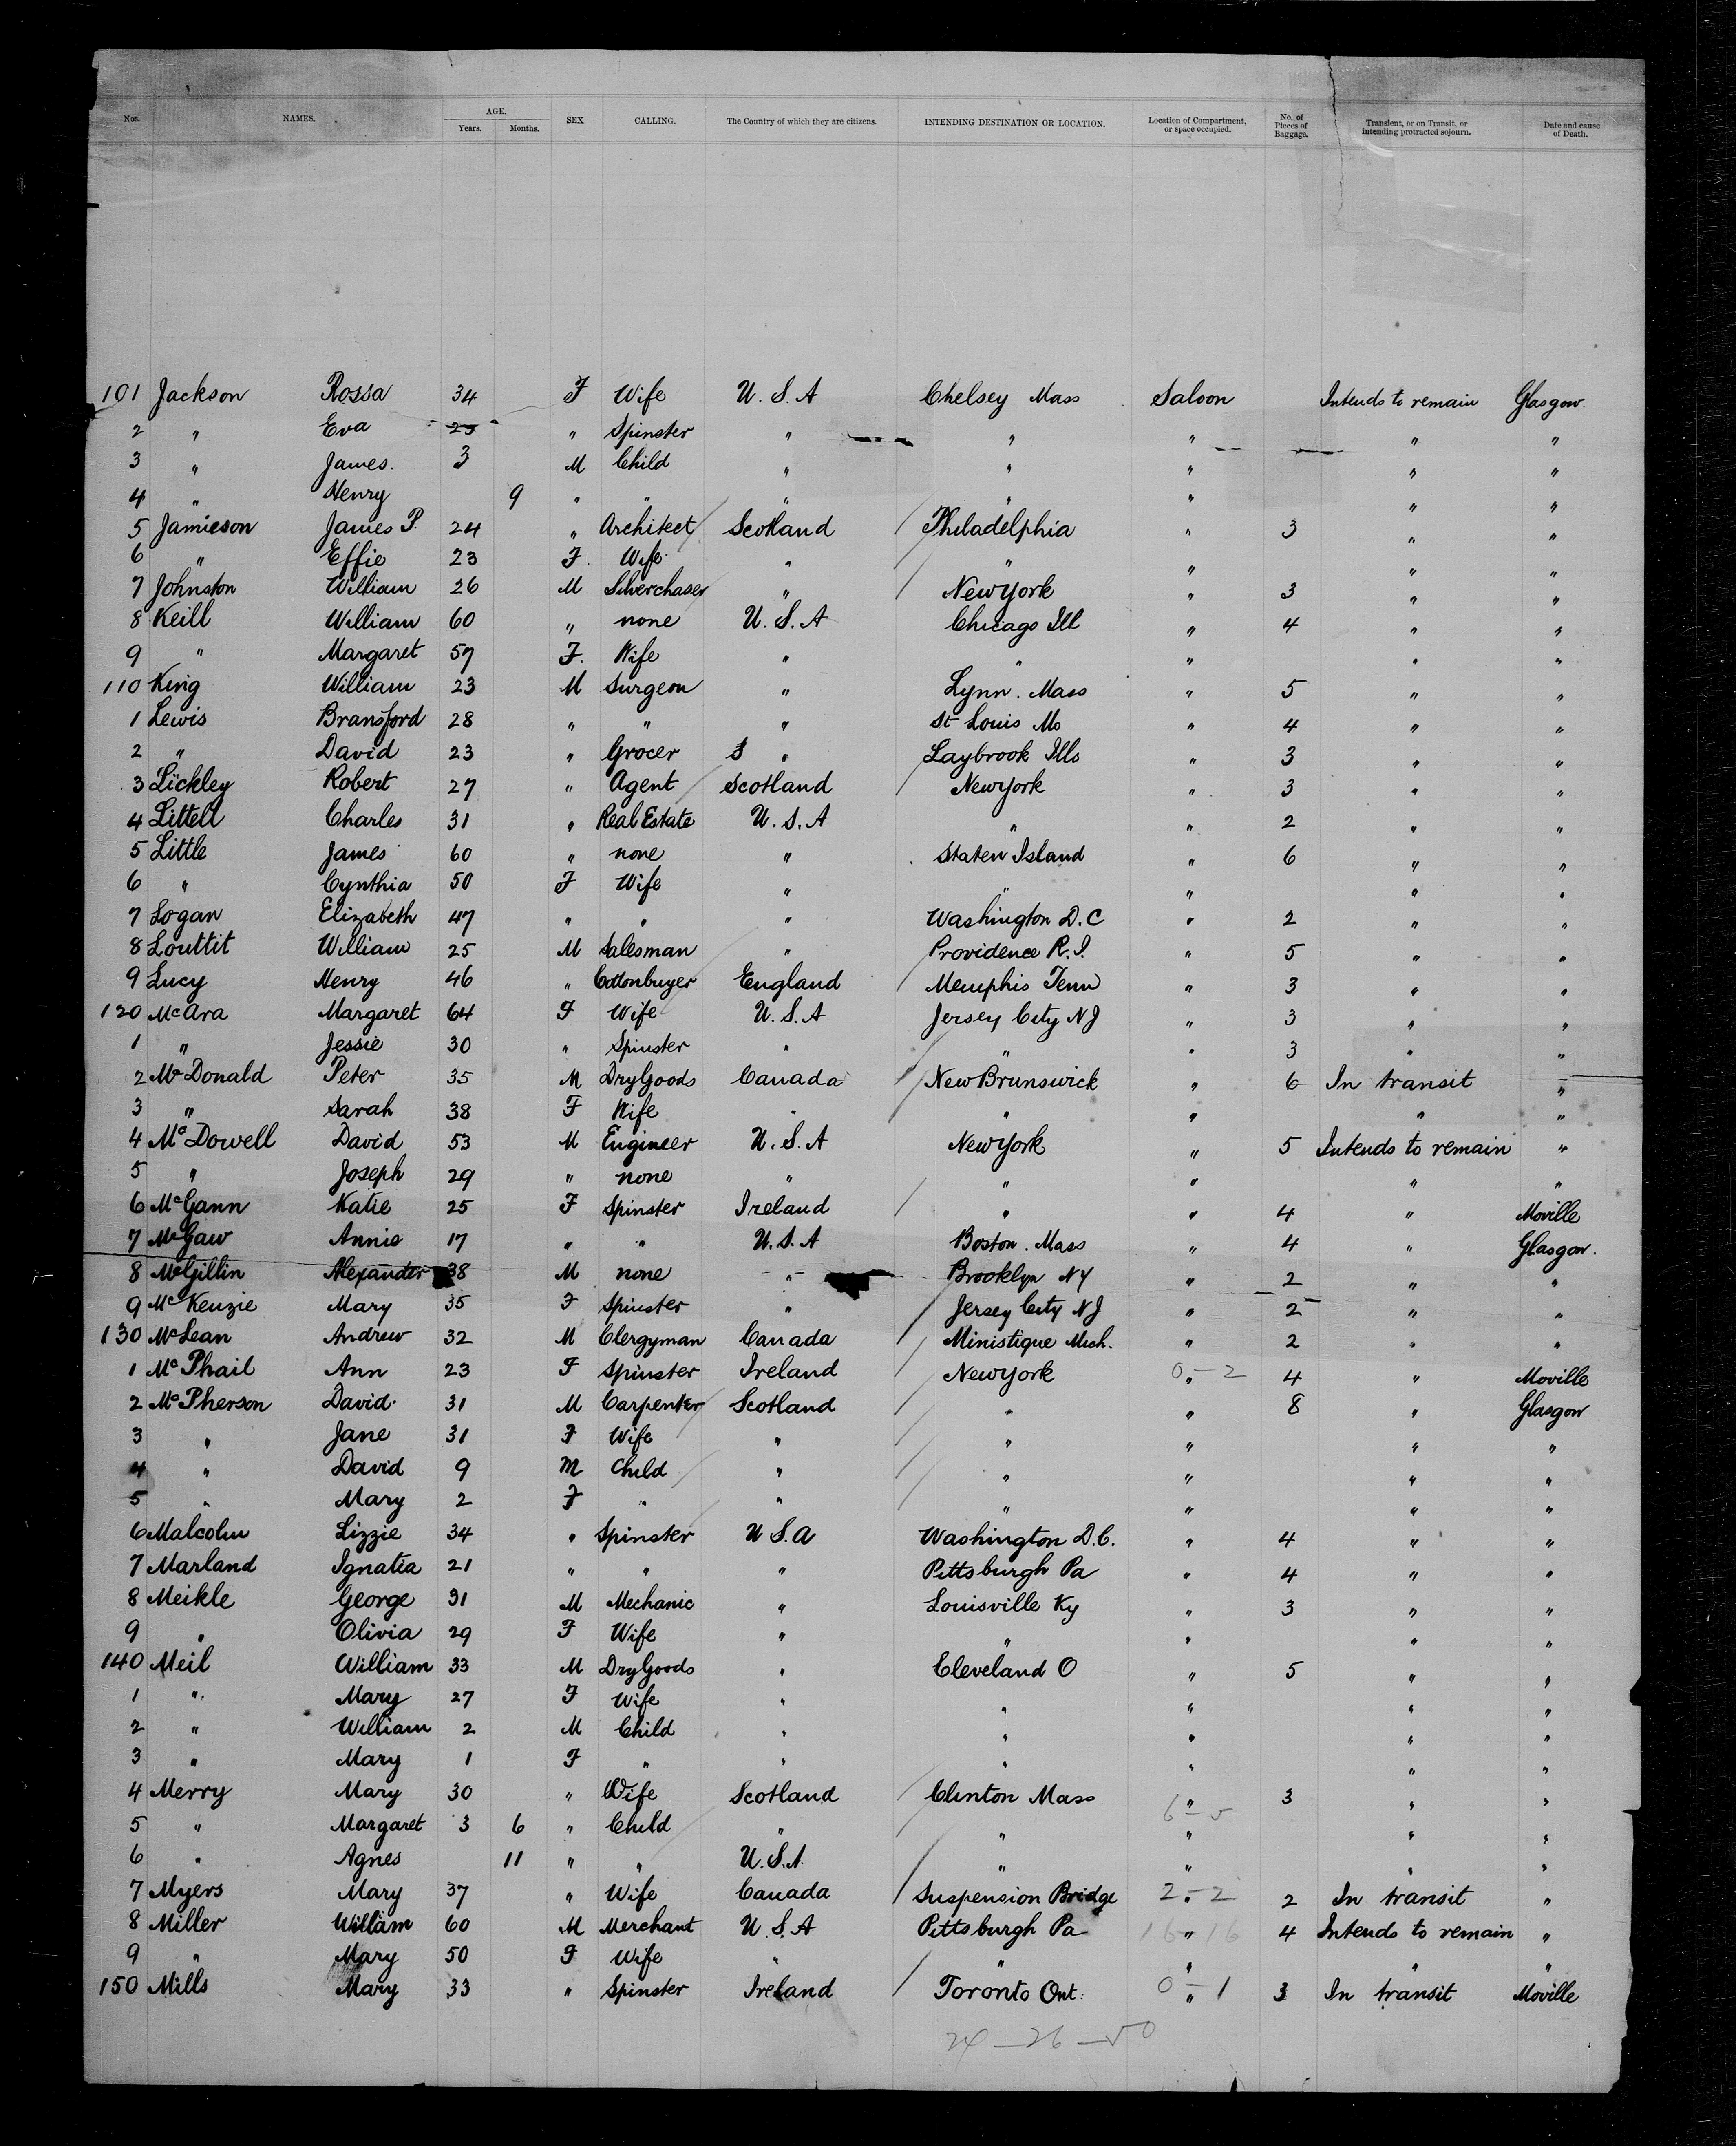 Nos. NAMES. AGE. Years. Months. SEX CALLING. The Country of which they are citizens. INTENDING DESTINATION OR LOCATION. Location of Compartment, or space occupied. No. of Pieces of Baggage. Transient, or on Transit, or intending protracted sojourn. Date and cause of Death.
101 Jackson Rossa 34 F Wife U.S.A Chelsey Mass Saloon Intends to remain Glasgow.
2 " Eva 25 " Spinster " " " " "
3 " James. 3 M Child " " " " "
4 " Henry 9 " " " " " " "
5 Jamieson James P. 24 " Architect Scotland Philadelphia " 3 " "
6 " Effie 23 F. Wife " " " " "
7 Johnston William 26 M Silverchaser " New York " 3 " "
8 Keill William 60 " none U.S.A Chicago Ill " 4 " "
9 " Margaret 57 F. Wife " " " " "
110 King William 23 M Surgeon " Lynn. Mass " 5 " "
1 Lewis Bransford 28 " " " St Louis Mo " 4 " "
2 " David 23 " Grocer S " Laybrook Ills " 3 " "
3 Lickley Robert 27 " Agent Scotland New York " 3 " "
4 Littell Charles 31 " Real Estate U.S.A " " 2 " "
5 Little James 60 " none " Staten Island " 6 " "
6 " Cynthia 50 F Wife " " " " "
7 Logan Elizabeth 47 " " " Washington D.C " 2 " "
8 Louttit William 25 M Salesman " Providence R.I. " 5 " "
9 Lucy Henry 46 " Cottonbuyer England Memphis Tenn " 3 " "
120 McAra Margaret 64 F Wife U.S.A Jersey City NJ " 3 " "
1 " Jessie 30 " Spinster " " " 3 " "
2 McDonald Peter 35 M Dry Goods Canada New Brunswick " 6 In transit "
3 " Sarah 38 F Wife " " " " "
4 McDowell David 53 M Engineer U.S.A New York " 5 Intends to remain "
5 " Joseph 29 " none " " " " "
6 McGann Katie 25 F Spinster Ireland " " 4 " Moville
7 McGaw Annie 17 " " U.S.A Boston. Mass " 4 " Glasgow.
8 McGillin Alexander 38 M none " Brooklyn NY " 2 " "
9 McKenzie Mary 35 F Spinster " Jersey City NJ " 2 " "
130 McLean Andrew 32 M Clergyman Canada Ministique Mich. " 2 " "
1 McPhail Ann 23 F Spinster Ireland New York 0 - 2 " 4 " Moville
2 McPherson David. 31 M Carpenter Scotland " " 8 " Glasgow
3 " Jane 31 F Wife " " " " "
4 " David 9 M Child " " " " "
5 " Mary 2 F " " " " " "
6 Malcolm Lizzie 34 " Spinster U.S.A Washington D.C. " 4 " "
7 Marland Ignatia 21 " " " Pittsburgh Pa " 4 " "
8 Meikle George 31 M Mechanic " Louisville Ky " 3 " "
9 " Olivia 29 F Wife " " " " "
140 Meil William 33 M Dry Goods " Cleveland O " 5 " "
1 " Mary 27 F Wife " " " " "
2 " William 2 M Child " " " " "
3 " Mary 1 F " " " " " "
4 Merry Mary 30 " Wife Scotland Clinton Mass " 3 " "
5 " Margaret 3 6 " Child " " 6 - 5 " " "
6 " Agnes 11 " " U.S.A. " " " "
7 Myers Mary 37 " Wife Canada Suspension Bridge 2 - 2 " 2 In transit "
8 Miller William 60 M Merchant U.S.A Pittsburgh Pa 16 " 16 4 Intends to remain "
9 " Mary 50 F Wife " " " " "
150 Mills Mary 33 " Spinster Ireland Toronto Ont: 0 - 1 " 3 In transit Moville
24 - 26 - 50